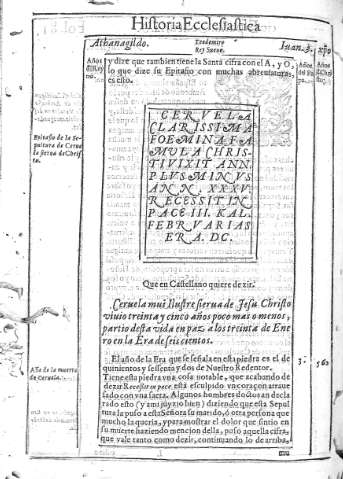 Historia Ecclesiastica
Athanagildo.
Teodemiro
Rey Suevo.
Iuan. 3.
y dire que tambien tiene la Santa cifra con el A, y O,
lo que dize su Epitafio con muchas abreuiaturas,
es esto.
Epitafio de la Se-
pultura de Cerue
la sierua de Christo.
CERVELA
CLARISSIMA
FOEMINA FA
MVLA CHRIS-
TI VIXIT ANN.
PLVS MINVS
ANN. XXXV
RECESSIT IN
PACE III. KAL.
FEBRVARIAS
ERA. DC.
Que en Castellano quiere dezir.
Ceruela mui Ilustre sierua de Jesu Christo
viuio treinta y cinco años poco mas o menos,
partio desta vida en paz a los treinta de Ene
ro en la Era de seiscientos.
El año de la Era que se señala en esta piedra es el de
quinientos y sessenta y dos de Nuestro Redentor.
3.
562
Año de la muerte
de Ceruela.
Tiene esta piedra vna cosa notable, que acabando de
dezir Recessit in pace està esculpido vn coraçon atraue
sado con vna saeta. Algunos hombres doctos an decla
rado esto (y a mi juyzio bien) diziendo que esta Sepul
tura la puso a esta Señora su marido, ó otra persona que
mucho la queria, y para mostrar el dolor que sintio en
su muerte haziendo mencion della, puso aquella cifra,
que vale tanto como dezir, continuando lo de arriba,